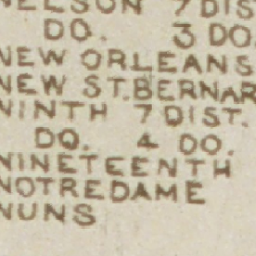 NELSON 7 DIS
DO. 3 DO.
NEW ORLEANS
NEW ST. BERNAR
NINTH 7 DIST.
DO. 4 DO.
NINETEENTH
NOTREDAME
NUNS